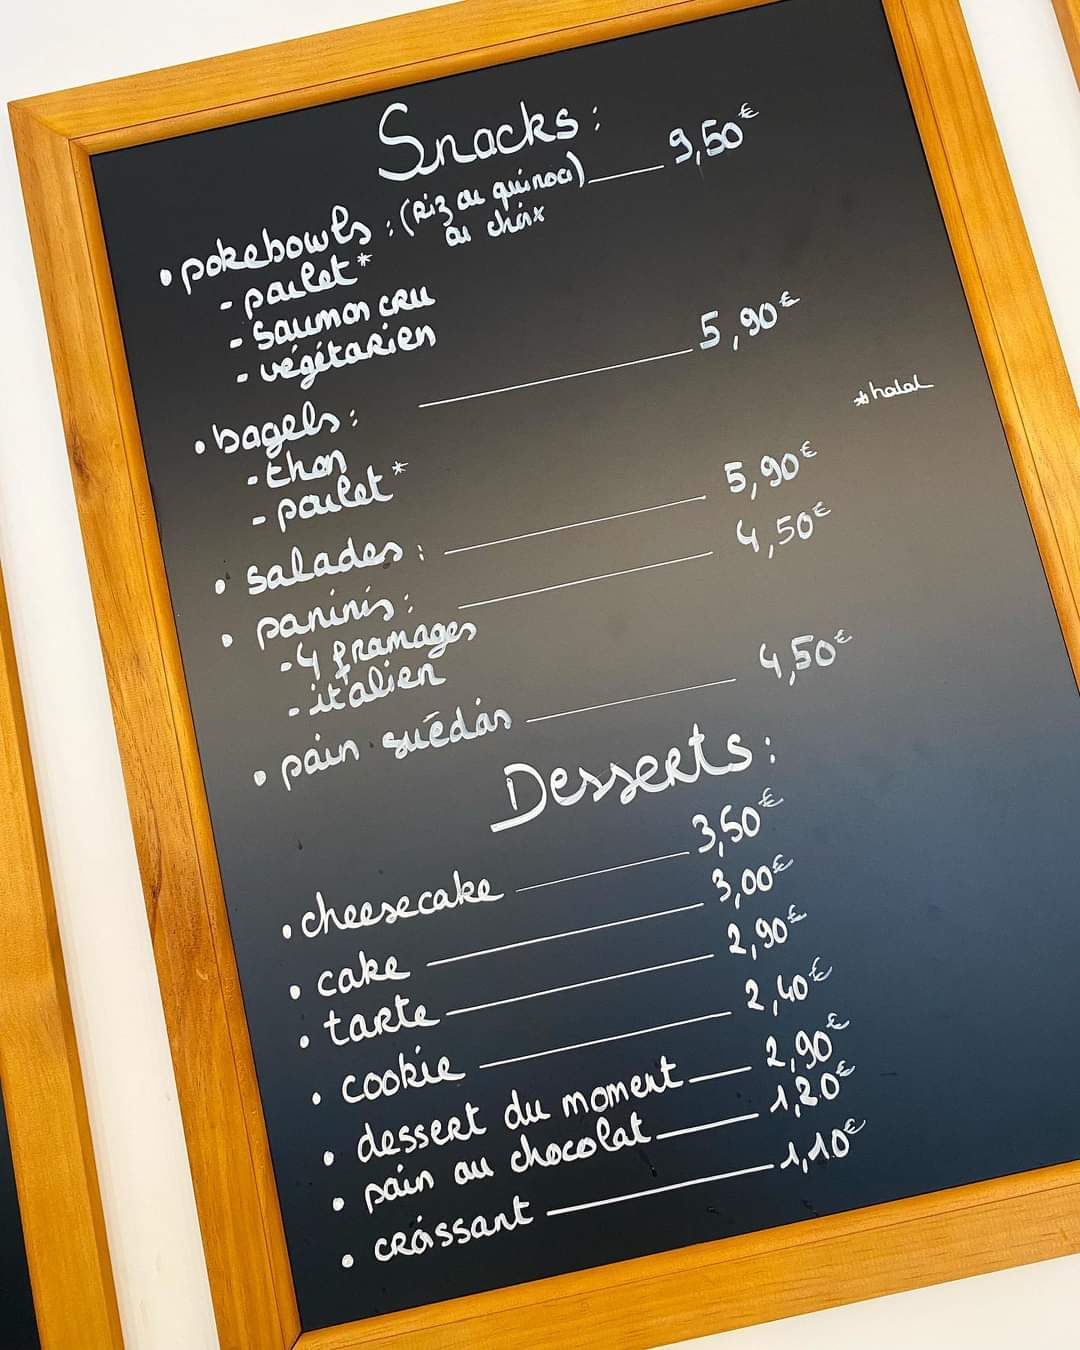 Snacks :
• pokebowls : (Riz ou quinoa) 9,50€
au choix
- poulet*
- saumon cru
- végétarien
• bagels : 5,90€
*halal
- thon
- poulet*
• salades : 5,90€
• paninis : 4,50€
- 4 fromages
- italien
• pain suédois 4,50€
Desserts :
• cheesecake 3,50€
• cake 3,00€
• tarte 2,90€
• cookie 2,40€
• dessert du moment 2,90€
• pain au chocolat 1,20€
• croissant 1,10€